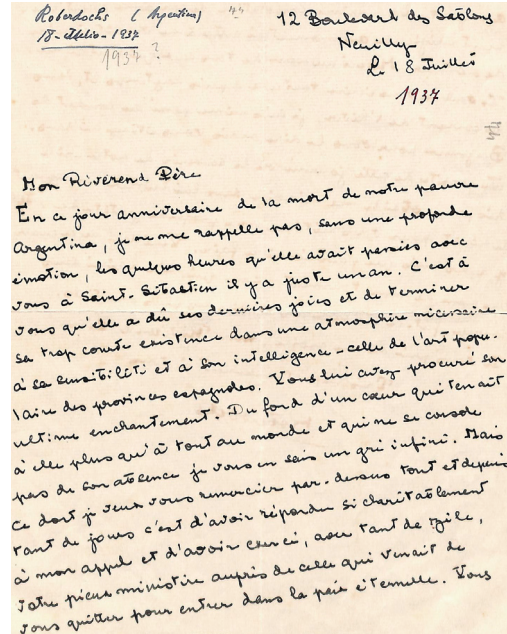 (Argentina)
18-julio-1937
1937 ?
44
12 Boulevard des Sablons
Neuilly
Le 18 Juillet
1937
Mon Révérend Père
En ce jour anniversaire de la mort de notre pauvre
Argentina, je ne me rappelle pas, sans une profonde
émotion, les quelques heures qu'elle avait passées avec
vous à Saint-Sébastien il y a juste un an. C'est à
vous qu'elle a dû ses dernières joies et de terminer
sa trop courte existence dans une atmosphère nécessaire
à sa sensibilité et à son intelligence - celle de l'art popu-
laire des provinces espagnoles. Vous lui avez procuré son
ultime enchantement. Du fond d'un cœur qui tenait
à elle plus qu'à tout au monde et qui ne se console
pas de son absence je vous en sais un gré infini. Mais
ce dont je veux vous remercier par-dessus tout et depuis
tant de jours c'est d'avoir répondu si charitablement
à mon appel et d'avoir exercé, avec tant de zèle,
votre pieux ministère auprès de celle qui venait de
vous quitter pour entrer dans la paix éternelle. Vous